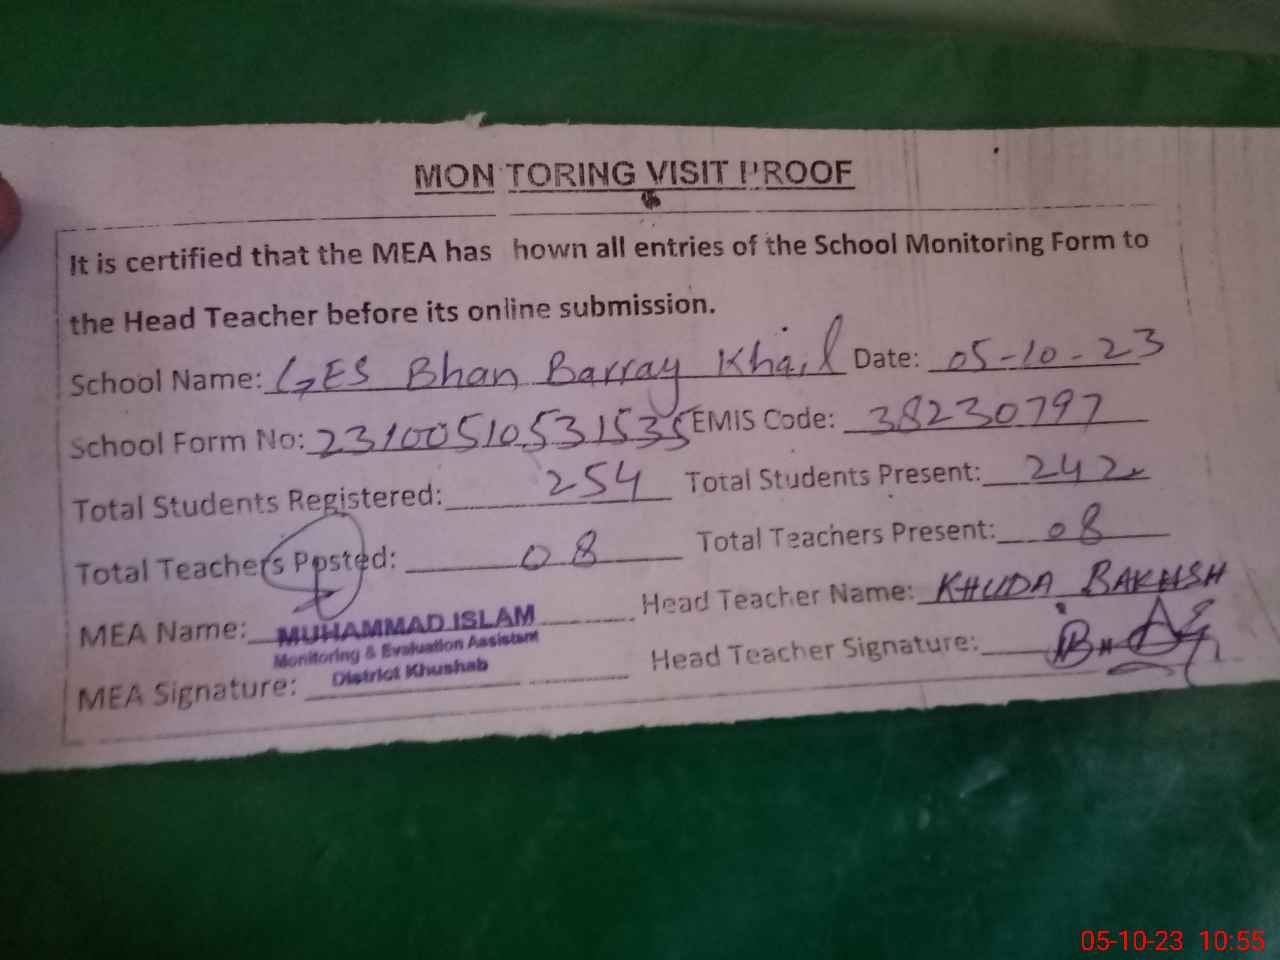 MONITORING VISIT PROOF
It is certified that the MEA has hown all entries of the School Monitoring Form to
the Head Teacher before its online submission.
School Name: GES Bhan Barray Khail Date: 05-10-23
School Form No: 23100510531535 EMIS Code: 38230797
Total Students Registered: 254 Total Students Present: 242
Total Teachers Posted: 08 Total Teachers Present: 08
MEA Name: MUHAMMAD ISLAM Head Teacher Name: KHUDA BAKHSH
Monitoring & Evaluation Assistant
District Khushab
MEA Signature: Head Teacher Signature:
05-10-23 10:55